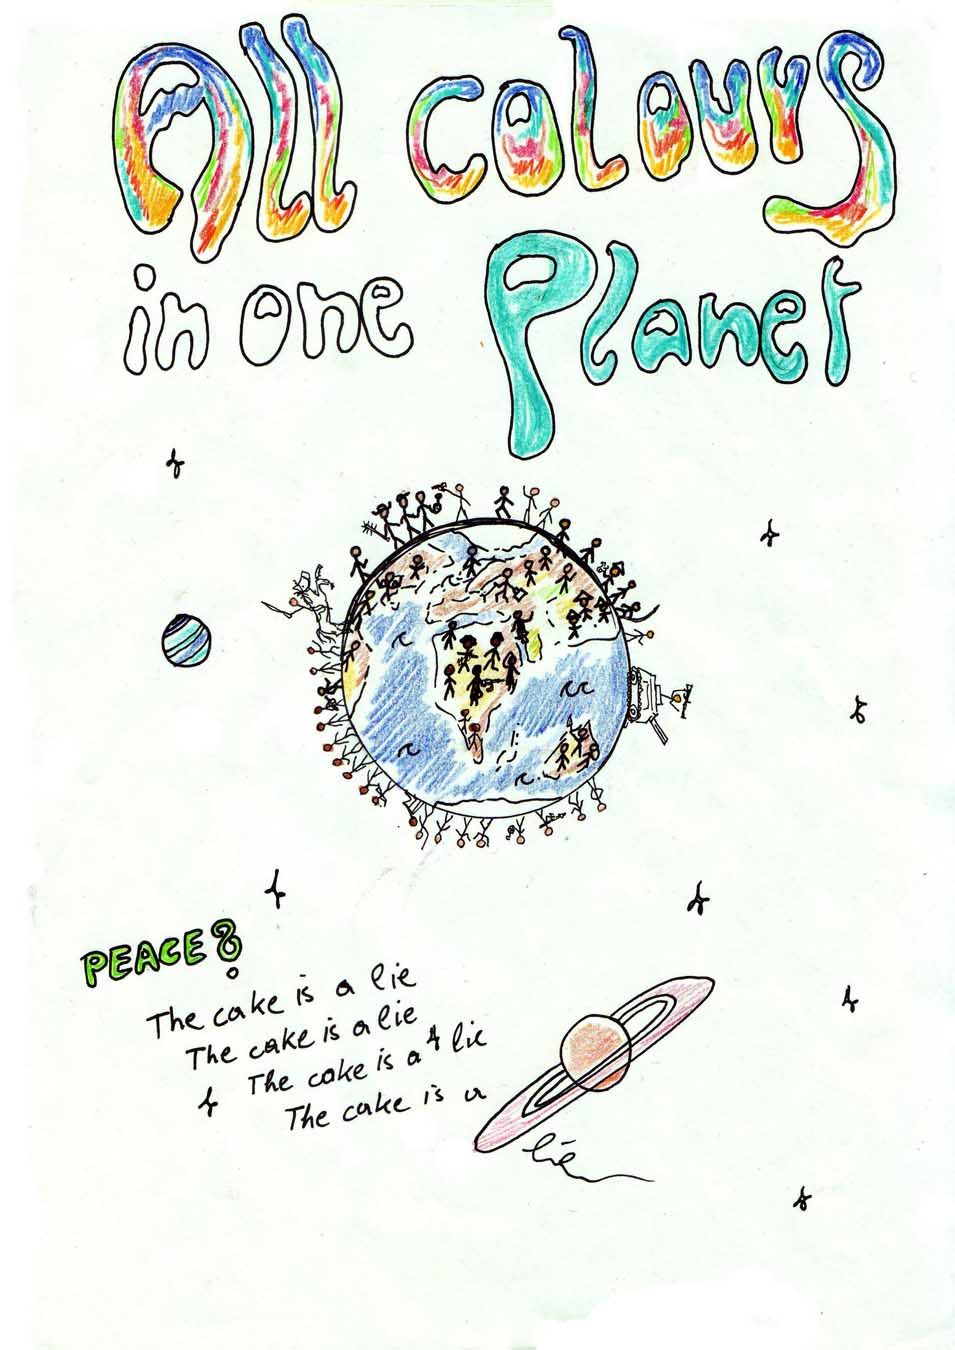 All colours
in one Planet
PEACE?
The cake is a lie
The cake is a lie
The cake is a lie
The cake is a
lie